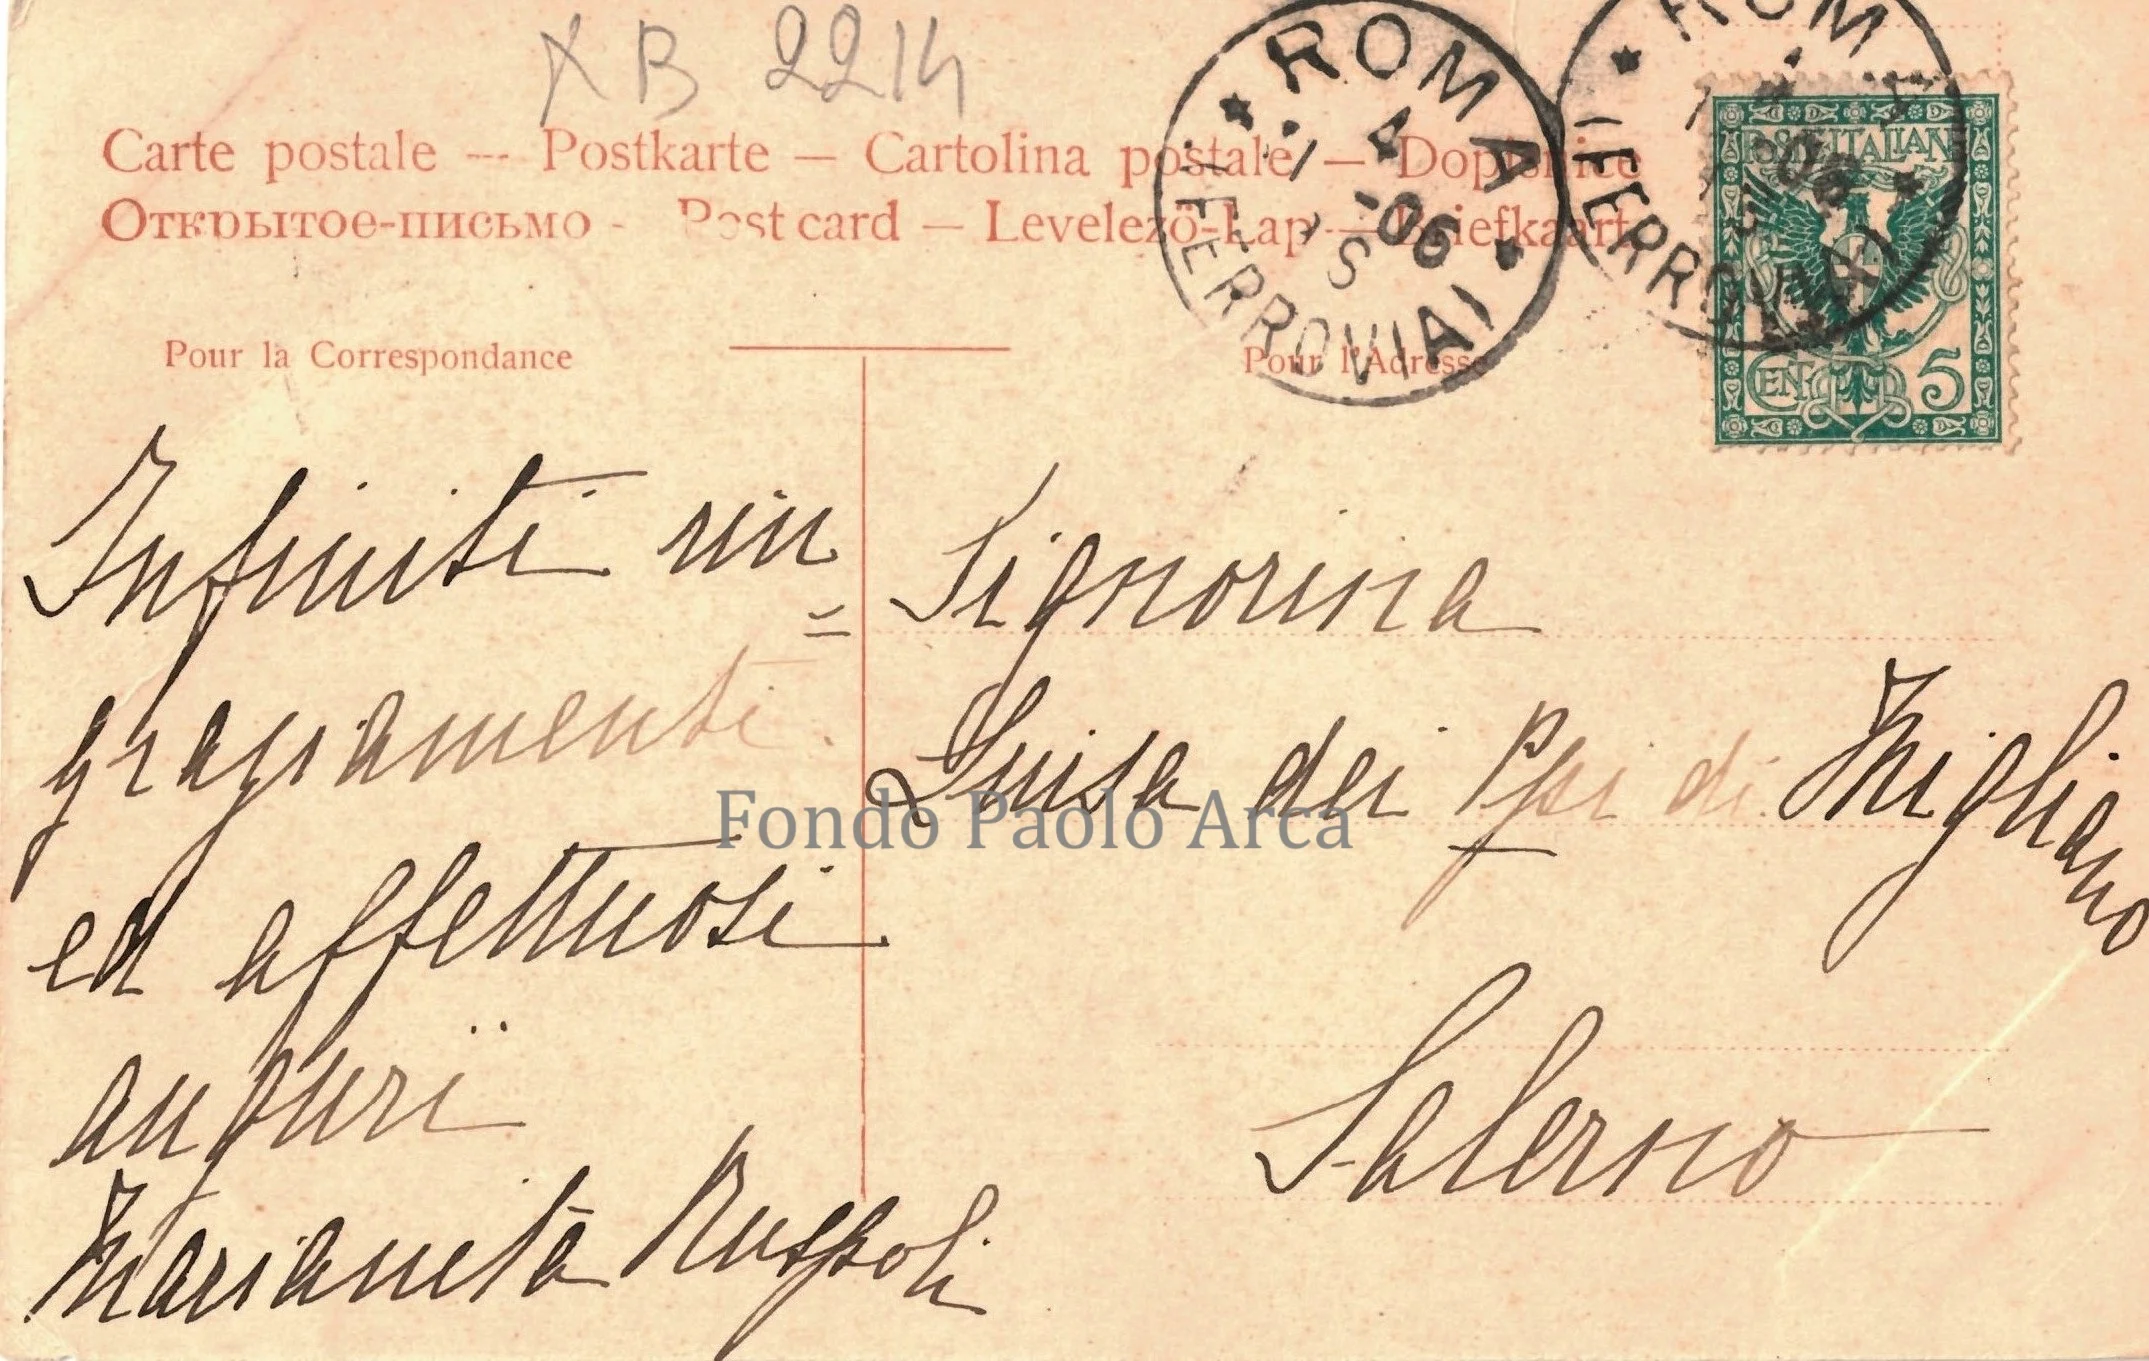 XB 2214
Carte postale --- Postkarte — Cartolina postale — Dopisnice
Открытое-письмо - Post card — Levelező-Lap — Briefkaart
ROMA
4
1-06
7 S
(FERROVIA)
ROMA
06
(FERROVIA)
POSTE ITALIANE
CEN. 5
Pour la Correspondance
Infiniti rin=
graziamenti.
ed affettuosi
auguri
Marianita Ruspoli
Pour l'Adresse
Signorina
Luisa dei Ppi di Migliano
Salerno
Fondo Paolo Arca